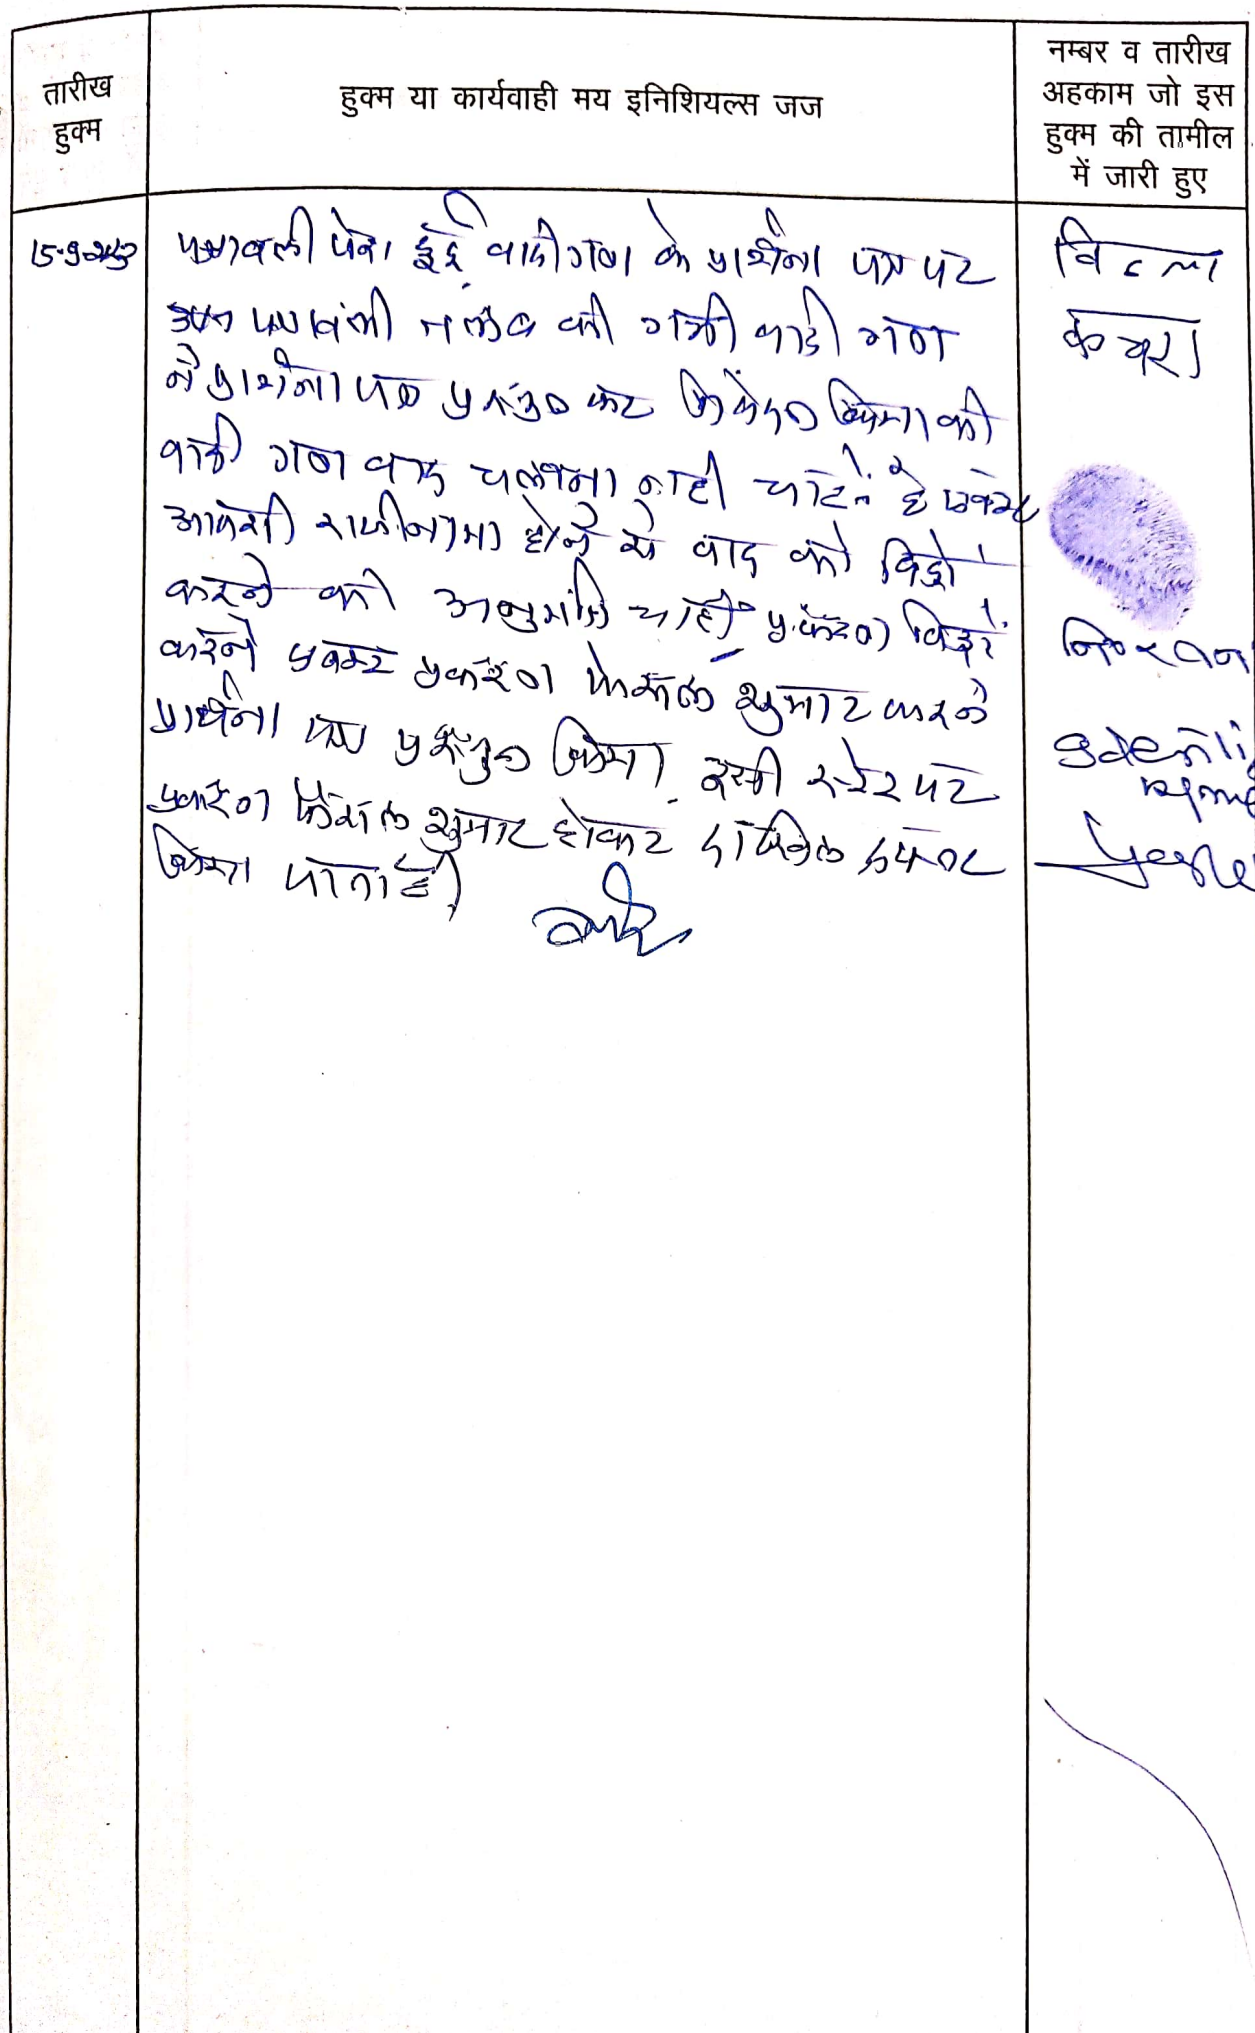 तारीख
हुक्म
हुक्म या कार्यवाही मय इनिशियल्स जज
नम्बर व तारीख
अहकाम जो इस
हुक्म की तामील
में जारी हुए
पत्रावली पेश हुई वादीगण के प्रार्थना पत्र पर
पत्रावली तलब की गयी वादी गण
ने प्रार्थना पत्र प्रस्तुत कर निवेदन किया की
वादी गण वाद चलाना नही चाहते है
आपसी राजीनामा होने से वाद को विड्रो
करने की अनुमति चाही प्रकरण विड्रो
करने प्रकरण फैसल शुमार करने
प्रार्थना पत्र प्रस्तुत किया इसी स्टेज पर
प्रकरण फैसल शुमार होकर दाखिल दफ्तर
किया जाता है।